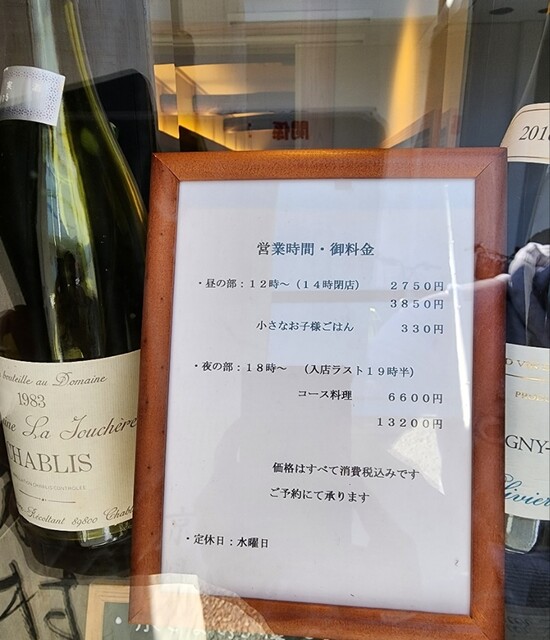 営業時間・御料金
・昼の部：12時～（14時閉店） 2750円
3850円
小さなお子様ごはん 330円
・夜の部：18時～ （入店ラスト19時半）
コース料理 6600円
13200円
価格はすべて消費税込みです
ご予約にて承ります
・定休日：水曜日
bouteille au Domaine
1983
La Jouchère
CHABLIS
Récoltant 89800 Chab
201
GNY-
livier